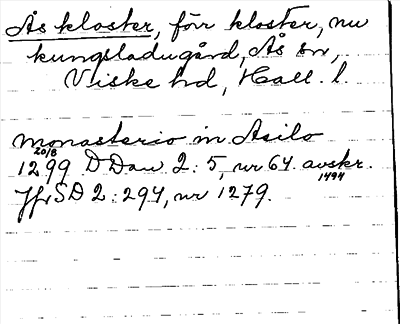 Ås kloster, förr kloster, nu
kungsladugård, Ås sn,
Viske hd, Hall. l.
monasterio in Asilo
20/8
1299 DDan 2:5, nr 64. avskr.
1494
Jfr SD 2:294, nr 1279.